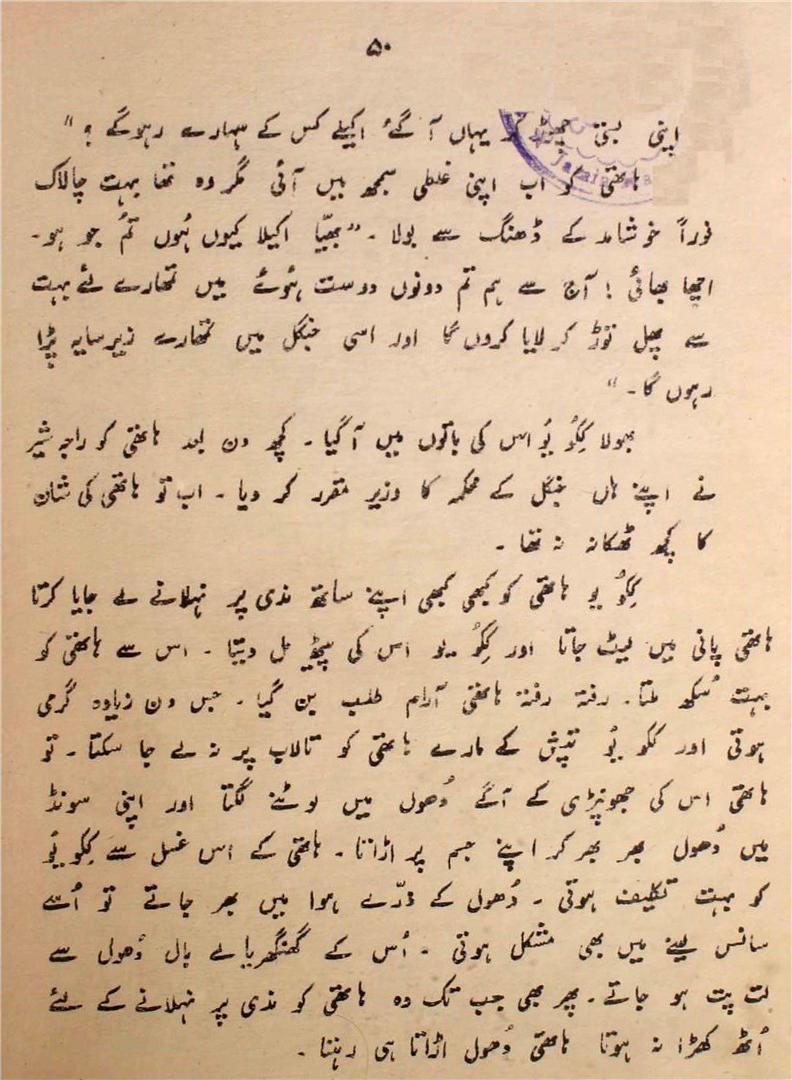 ۵۰
اپنی بستی چھوڑ کر یہاں آ گئے اکیلے کس کے سہارے رہو گے ؟"
ہاتھی کو اب اپنی غلطی سمجھ میں آئی مگر وہ تھا بہت چالاک
فوراً خوشامد کے ڈھنگ سے بولا ۔ "بھیّا اکیلا کیوں ہُوں تُم جو ہو۔
اچھا بھائی ! آج سے ہم تم دونوں دوست ہُوئے میں تمھارے لئے بہت
سے پھل توڑ کر لایا کروں گا اور اسی جنگل میں تمھارے زیرسایہ پڑا
رہوں گا۔"
بھولا کِکُو یُو اس کی باتوں میں آ گیا ۔ کچھ دن بعد ہاتھی کو راجہ شیر
نے اپنے ہاں جنگل کے محکمہ کا وزیر مقرر کر دیا ۔ اب تو ہاتھی کی شان
کا کچھ ٹھکانہ نہ تھا ۔
کِکُو یو ہاتھی کو کبھی کبھی اپنے ساتھ ندی پر نہلانے لے جایا کرتا
ہاتھی پانی میں لیٹ جاتا اور کِکُو یو اس کی پیٹھ مل دیتا ۔ اس سے ہاتھی کو
بہت سُکھ ملتا۔ رفتہ رفتہ ہاتھی آرام طلب بن گیا ۔ جس دن زیادہ گرمی
ہوتی اور ککو یُو تپش کے مارے ہاتھی کو تالاب پر نہ لے جا سکتا ۔ تو
ہاتھی اس کی جھونپڑی کے آگے دُھول میں لوٹنے لگتا اور اپنی سونڈ
میں دُھول بھر بھر کر اپنے جسم پر اڑاتا ۔ ہاتھی کے اس غسل سے کِکو یُو
کو بہت تکلیف ہوتی ۔ دُھول کے ذرّے ہوا میں بھر جاتے تو اُسے
سانس لینے میں بھی مشکل ہوتی ۔ اُس کے گھنگھریالے بال دُھول سے
لت پت ہو جاتے ۔ پھر بھی جب تک وہ ہاتھی کو ندی پر نہلانے کے لئے
اُٹھ کھڑا نہ ہوتا ہاتھی دُھول اڑاتا ہی رہتا ۔